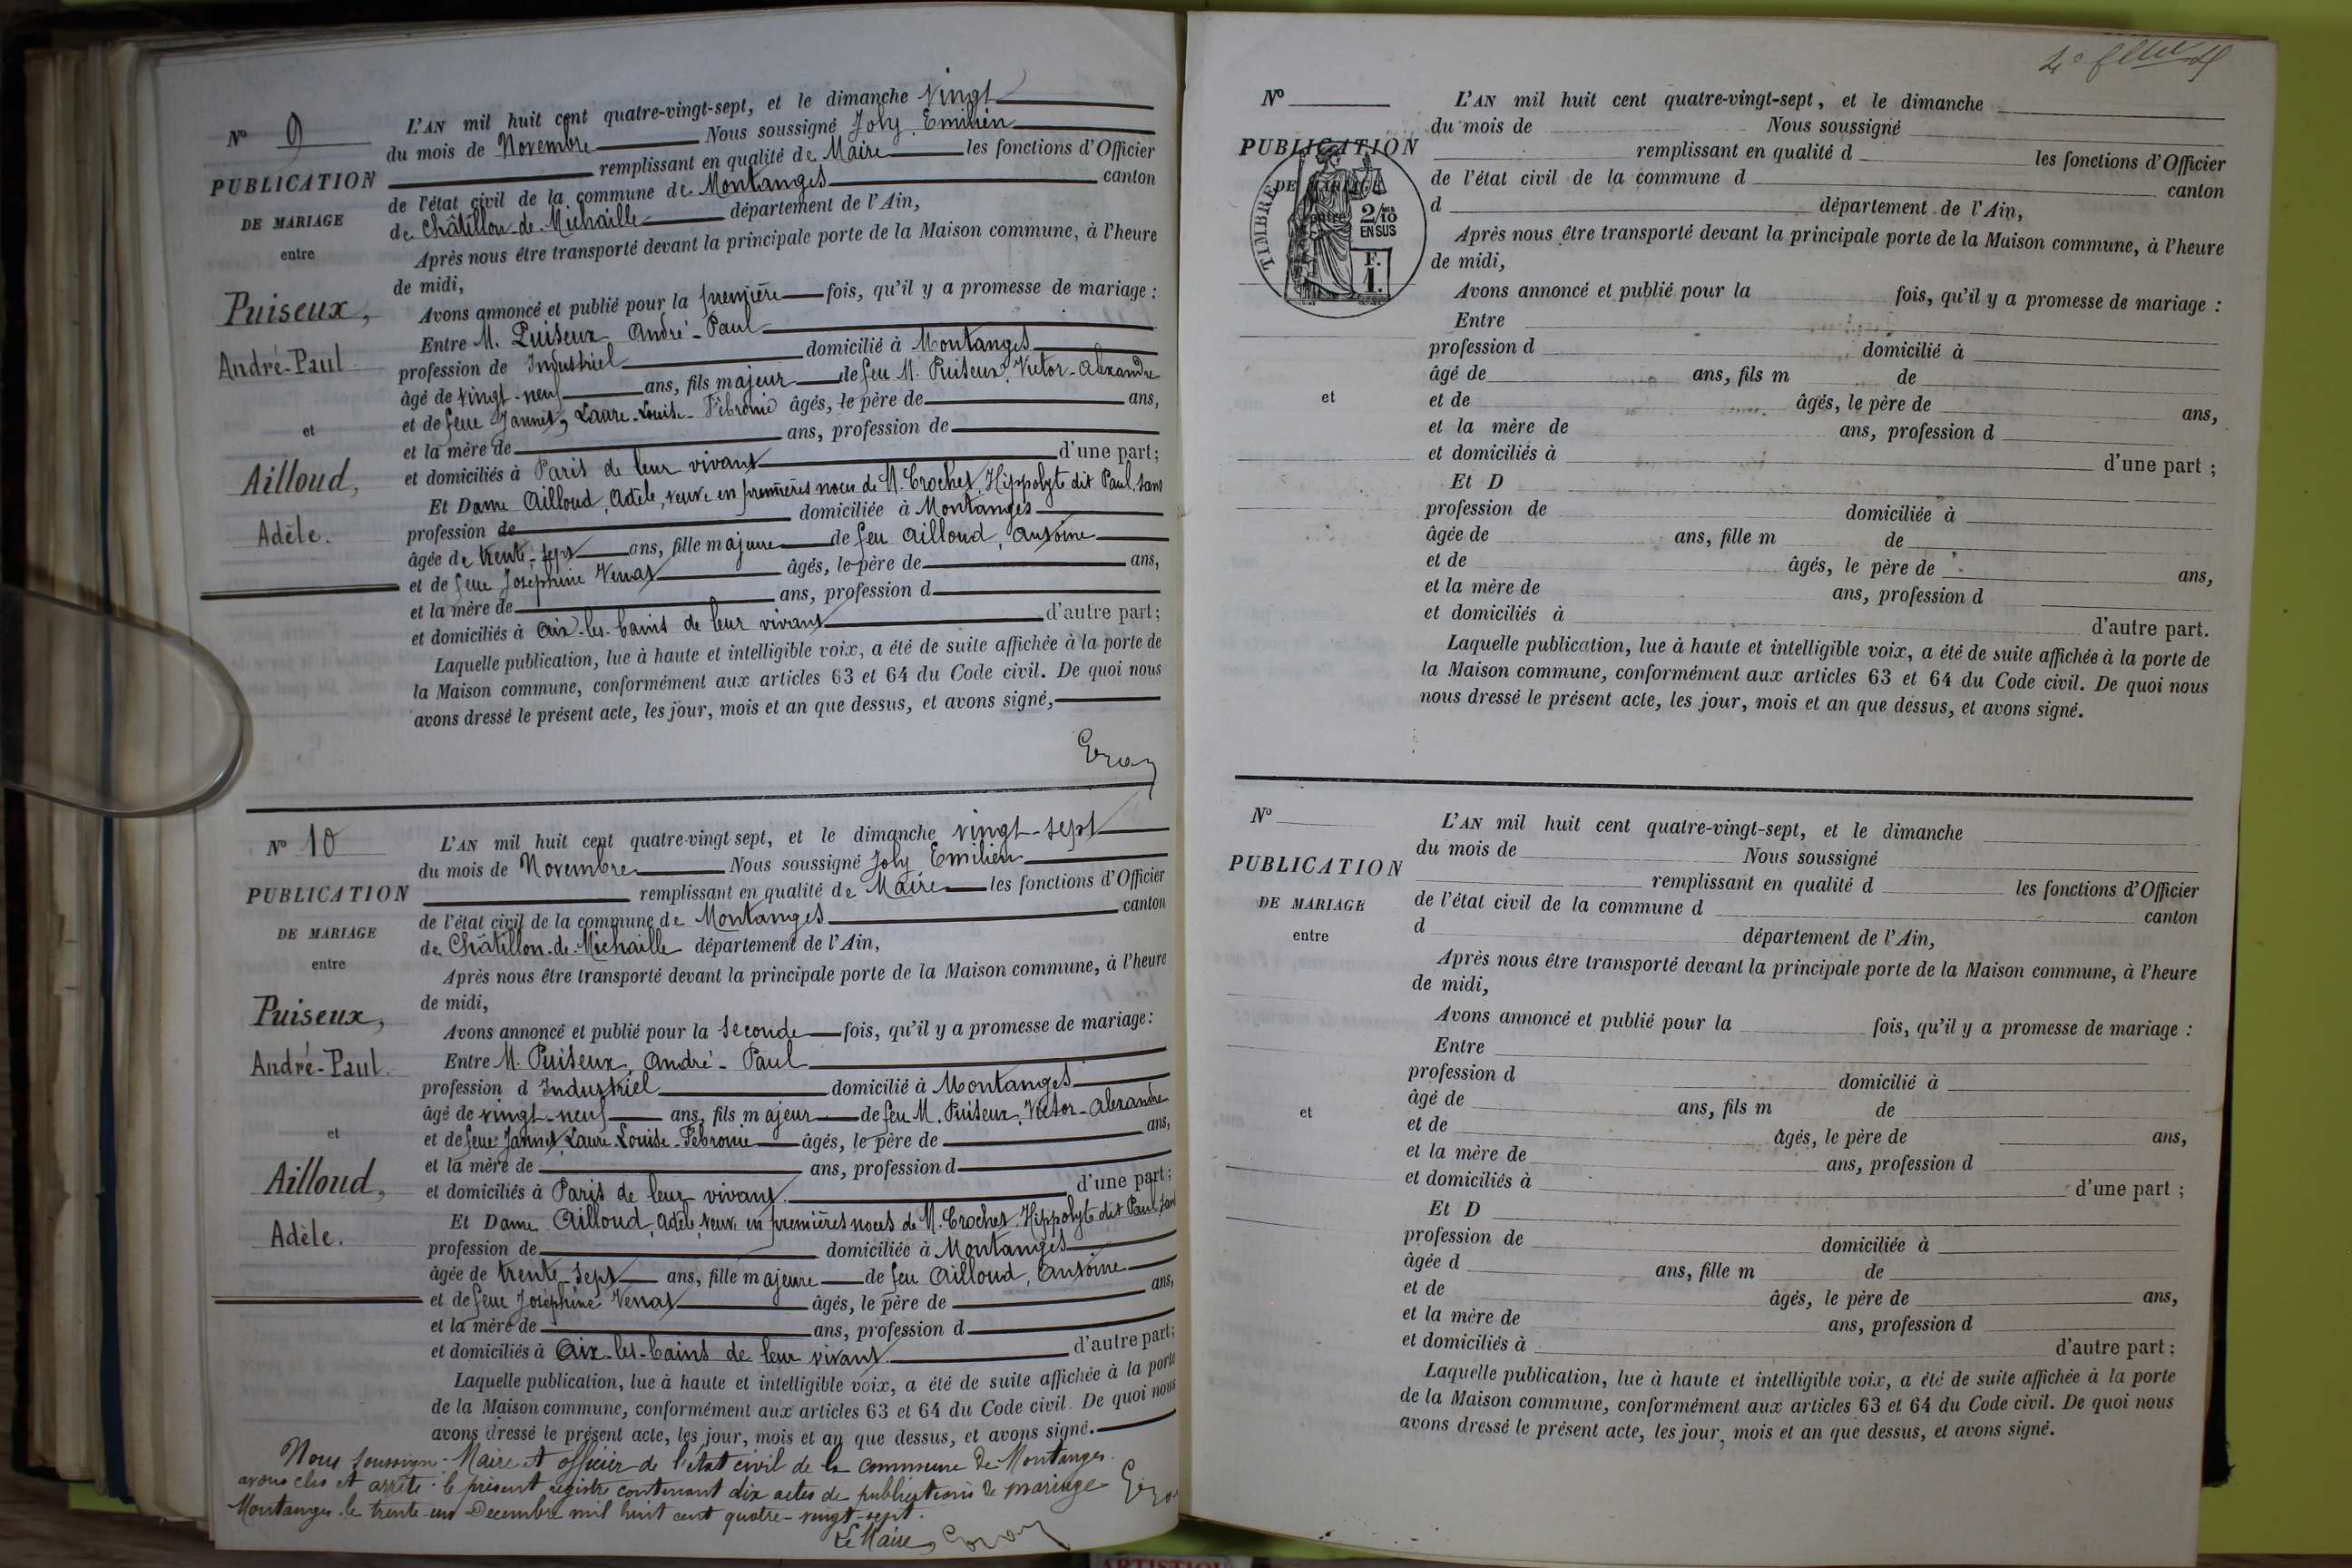 N° 9
PUBLICATION
DE MARIAGE
entre
Puiseux,
André-Paul
et
Ailloud,
Adèle.
L'AN mil huit cent quatre-vingt-sept, et le dimanche vingt
du mois de Novembre Nous soussigné Joly Emilien
remplissant en qualité de Maire les fonctions d'Officier
de l'état civil de la commune de Montanges canton
de Châtillon-de-Michaille département de l'Ain,
Après nous être transporté devant la principale porte de la Maison commune, à l'heure
de midi,
Avons annoncé et publié pour la première fois, qu'il y a promesse de mariage :
Entre M. Puiseux André-Paul
profession de Industriel domicilié à Montanges
âgé de vingt-neuf ans, fils majeur de feu M. Puiseux, Victor-Alexandre
et de feue Jannet, Laure-Louise-Fébronie âgés, le père de ans,
et la mère de ans, profession de
et domiciliés à Paris de leur vivant d'une part;
Et Dame Ailloud, Adèle, veuve en premières noces de M. Crochet, Hippolyte dit Paul, sans
profession de domiciliée à Montanges
âgée de trente-sept ans, fille majeure de feu Ailloud, Antoine
et de feue Joséphine Venat âgés, le père de ans,
et la mère de ans, profession d
et domiciliés à Aix-les-bains de leur vivant d'autre part;
Laquelle publication, lue à haute et intelligible voix, a été de suite affichée à la porte de
la Maison commune, conformément aux articles 63 et 64 du Code civil. De quoi nous
avons dressé le présent acte, les jour, mois et an que dessus, et avons signé,
N° 10
PUBLICATION
DE MARIAGE
entre
Puiseux,
André-Paul.
et
Ailloud,
Adèle.
L'AN mil huit cent quatre-vingt sept, et le dimanche vingt-sept
du mois de Novembre Nous soussigné Joly Emilien
remplissant en qualité de Maire les fonctions d'Officier
de l'état civil de la commune de Montanges canton
de Châtillon-de-Michaille département de l'Ain,
Après nous être transporté devant la principale porte de la Maison commune, à l'heure
de midi,
Avons annoncé et publié pour la seconde fois, qu'il y a promesse de mariage :
Entre M. Puiseux, André-Paul
profession d Industriel domicilié à Montanges
âgé de vingt-neuf ans, fils majeur de feu M. Puiseux, Victor-Alexandre
et de feue Jannet, Laure-Louise-Fébronie âgés, le père de ans,
et la mère de ans, profession d
et domiciliés à Paris de leur vivant. d'une part;
Et Dame Ailloud, Adèle, veuve en premières noces de M. Crochet, Hippolyte dit Paul, sans
profession de domiciliée à Montanges
âgée de trente-sept ans, fille majeure de feu Ailloud, Antoine
et de feue Joséphine Venat âgés, le père de ans,
et la mère de ans, profession d
et domiciliés à Aix-les-bains de leur vivant. d'autre part;
Laquelle publication, lue à haute et intelligible voix, a été de suite affichée à la porte
de la Maison commune, conformément aux articles 63 et 64 du Code civil. De quoi nous
avons dressé le présent acte, les jour, mois et an que dessus, et avons signé.
Nous soussigné Maire et officier de l'état civil de la commune de Montanges
avons clos et arrêté le présent registre contenant dix actes de publications de mariage
Montanges le trente-un Décembre mil huit cent quatre-vingt-sept.
Le Maire,
N°
PUBLICATION
DE MARIAGE
entre
TIMBRE
2/10
EN SUS
F.
1.
et
L'AN mil huit cent quatre-vingt-sept, et le dimanche
du mois de Nous soussigné
remplissant en qualité d les fonctions d'Officier
de l'état civil de la commune d canton
d département de l'Ain,
Après nous être transporté devant la principale porte de la Maison commune, à l'heure
de midi,
Avons annoncé et publié pour la fois, qu'il y a promesse de mariage :
Entre
profession d domicilié à
âgé de ans, fils m de
et de âgés, le père de ans,
et la mère de ans, profession d
et domiciliés à d'une part ;
Et D
profession de domiciliée à
âgée de ans, fille m de
et de âgés, le père de ans,
et la mère de ans, profession d
et domiciliés à d'autre part.
Laquelle publication, lue à haute et intelligible voix, a été de suite affichée à la porte de
la Maison commune, conformément aux articles 63 et 64 du Code civil. De quoi nous
nous dressé le présent acte, les jour, mois et an que dessus, et avons signé.
N°
PUBLICATION
DE MARIAGE
entre
et
L'AN mil huit cent quatre-vingt-sept, et le dimanche
du mois de Nous soussigné
remplissant en qualité d les fonctions d'Officier
de l'état civil de la commune d canton
d département de l'Ain,
Après nous être transporté devant la principale porte de la Maison commune, à l'heure
de midi,
Avons annoncé et publié pour la fois, qu'il y a promesse de mariage :
Entre
profession d domicilié à
âgé de ans, fils m de
et de âgés, le père de ans,
et la mère de ans, profession d
et domiciliés à d'une part ;
Et D
profession de domiciliée à
âgée d ans, fille m de
et de âgés, le père de ans,
et la mère de ans, profession d
et domiciliés à d'autre part ;
Laquelle publication, lue à haute et intelligible voix, a été de suite affichée à la porte
de la Maison commune, conformément aux articles 63 et 64 du Code civil. De quoi nous
avons dressé le présent acte, les jour, mois et an que dessus, et avons signé.